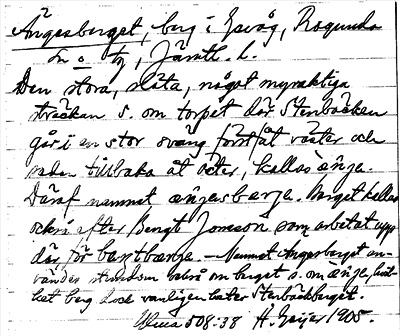 Ängesberget, berg i Gevåg, Ragunda
sn o tg, Jämtl. l.
Den stora, släta, något myraktiga
sträckan s. om torpet där Stenbäcken
går i en stor sväng först åt väster och
sedan tillbaka åt öster, kallas änga.
Däraf namnet ängasbærja. Berget kallas
också efter Bengt Jonsson som arbetat upp
där för bæntbærja. – Namnet Ängesberget an-
vändes stundom också om berget s. om änga, hvil-
ket berg dock vanligen heter Stenbäckberget.
508:38 H. Geijer 1905.